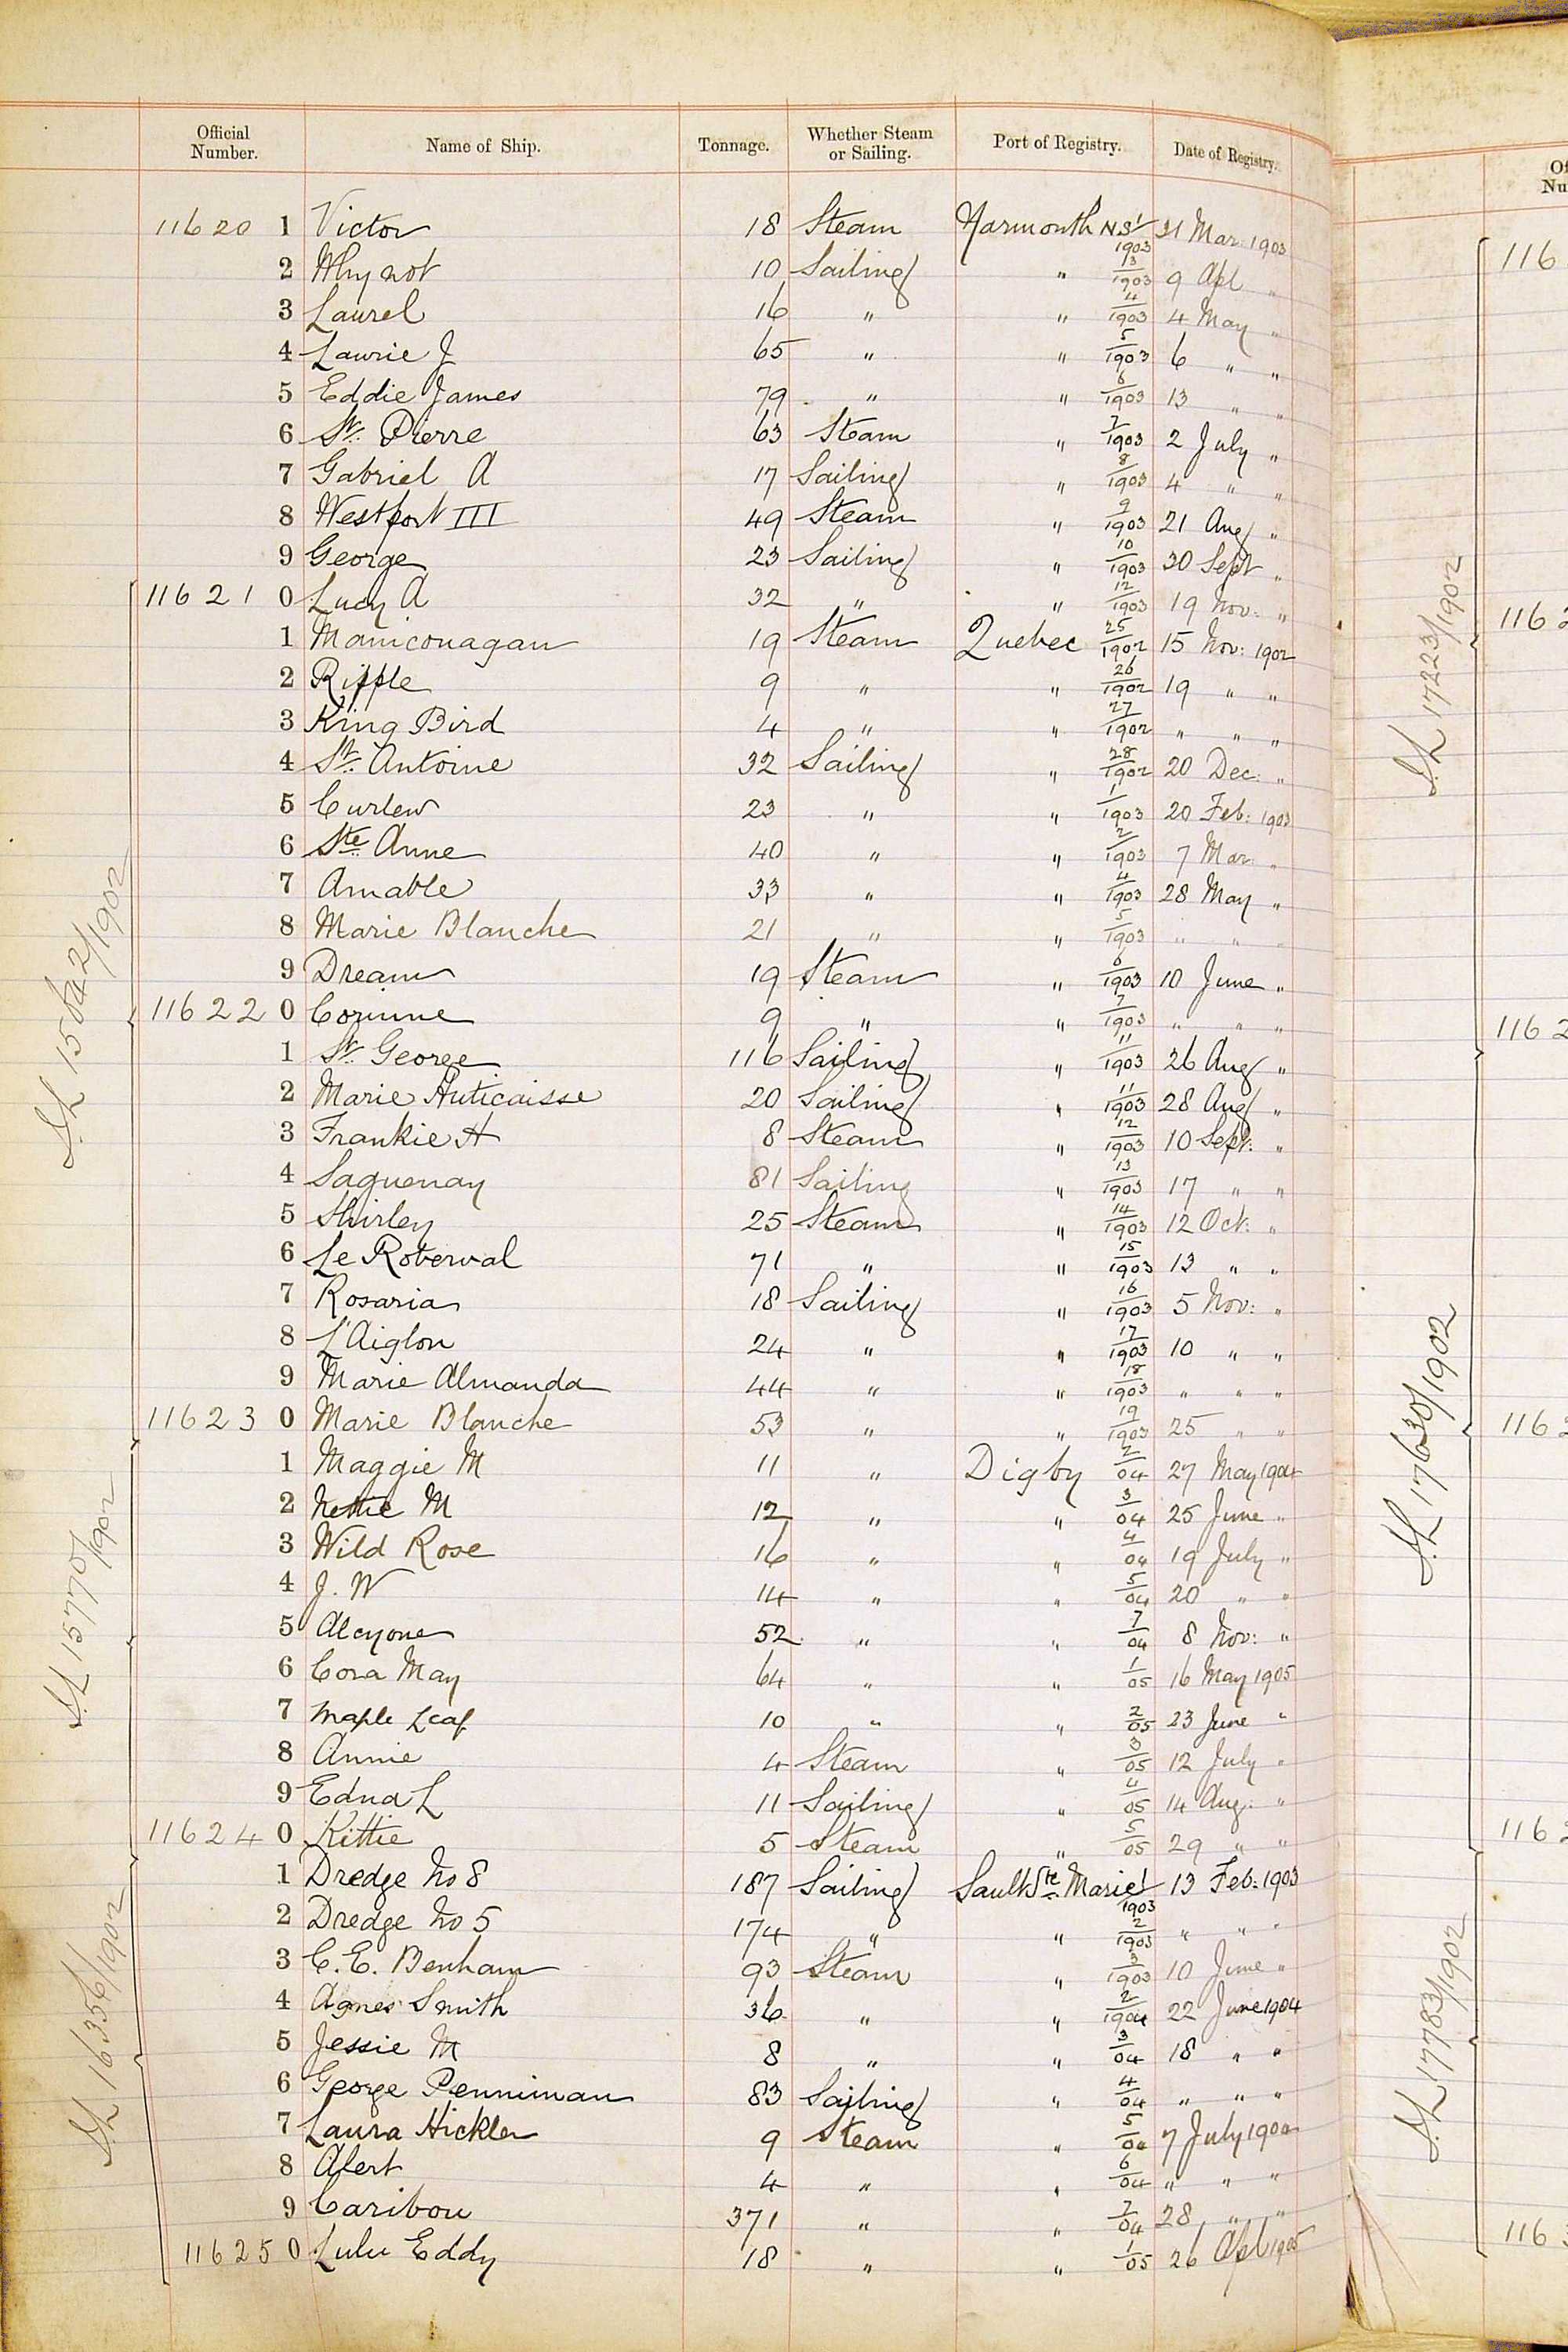 Official Number. Name of Ship. Tonnage. Whether Steam or Sailing. Port of Registry. Date of Registry.
11620 1 Victor 18 Steam Yarmouth NS 1/1903 31 Mar: 1903
2 Why not 10 Sailing " 13/1903 9 Apl "
3 Laurel 16 " " 4/1903 4 May "
4 Laurie J 65 " " 5/1903 6 " "
5 Eddie James 79 " " 6/1903 13 " "
6 St. Pierre 63 Steam " 7/1903 2 July "
7 Gabriel A 17 Sailing " 8/1903 4 " "
8 Westport III 49 Steam " 9/1903 21 Aug "
9 George 23 Sailing " 10/1903 30 Sept "
11621 0 Lucy A 32 " " 12/1903 19 Nov: "
1 Manicouagan 19 Steam Quebec 25/1902 15 Nov: 1902
2 Ripple 9 " " 26/1902 19 " "
3 King Bird 4 " " 27/1902 " " "
4 St. Antoine 32 Sailing " 28/1902 20 Dec: "
5 Curlew 23 " " 1/1903 20 Feb: 1903
6 Ste Anne 40 " " 2/1903 7 Mar: "
7 Amable 33 " " 4/1903 28 May "
8 Marie Blanche 21 " " 5/1903 " " "
9 Dream 19 Steam " 6/1903 10 June "
11622 0 Corinne 9 " " 7/1903 " " "
1 St. George 116 Sailing " 11/1903 26 Aug "
2 Marie 20 Sailing " 11/1903 28 Aug "
3 Frankie H 8 Steam " 12/1903 10 Sept: "
4 Saguenay 81 Sailing " 13/1903 17 " "
5 Shirley 25 Steam " 14/1903 12 Oct: "
6 Le Roberval 71 " " 15/1903 13 " "
7 Rosaria 18 Sailing " 16/1903 5 Nov: "
8 L'Aiglon 24 " " 17/1903 10 " "
9 Marie Almanda 44 " " 18/1903 " " "
11623 0 Marie Blanche 53 " " 19/1903 25 " "
1 Maggie M 11 " Digby 2/04 27 May 1904
2 Nettie M 12 " " 3/04 25 June "
3 Wild Rose 16 " " 4/04 19 July "
4 J. W 14 " " 5/04 20 " "
5 Alcyone 52 " " 7/04 8 Nov: "
6 Cora May 64 " " 1/05 16 May 1905
7 Maple Leaf 10 " " 2/05 23 June "
8 Annie 4 Steam " 3/05 12 July "
9 Edna L 11 Sailing " 4/05 14 Aug: "
11624 0 Kittie 5 Steam " 5/05 29 " "
1 Dredge No 8 187 Sailing Sault Ste Marie 1/1903 13 Feb: 1903
2 Dredge No 5 174 " " 2/1903 " " "
3 C. E. Benham 93 Steam " 3/1903 10 June "
4 Agnes Smith 36 " " 2/1904 22 June 1904
5 Jessie M 8 " " 3/04 18 " "
6 George Penniman 83 Sailing " 4/04 " " "
7 Laura Hickler 9 Steam " 5/04 7 July 1904
8 Alert 4 " " 6/04 " " "
9 Caribou 371 " " 7/04 28 " "
11625 0 Lulu Eddy 18 " " 1/05 26 Apl 1905
15770/1902
16356/1902
17223/1902
17630/1902
17783/1902